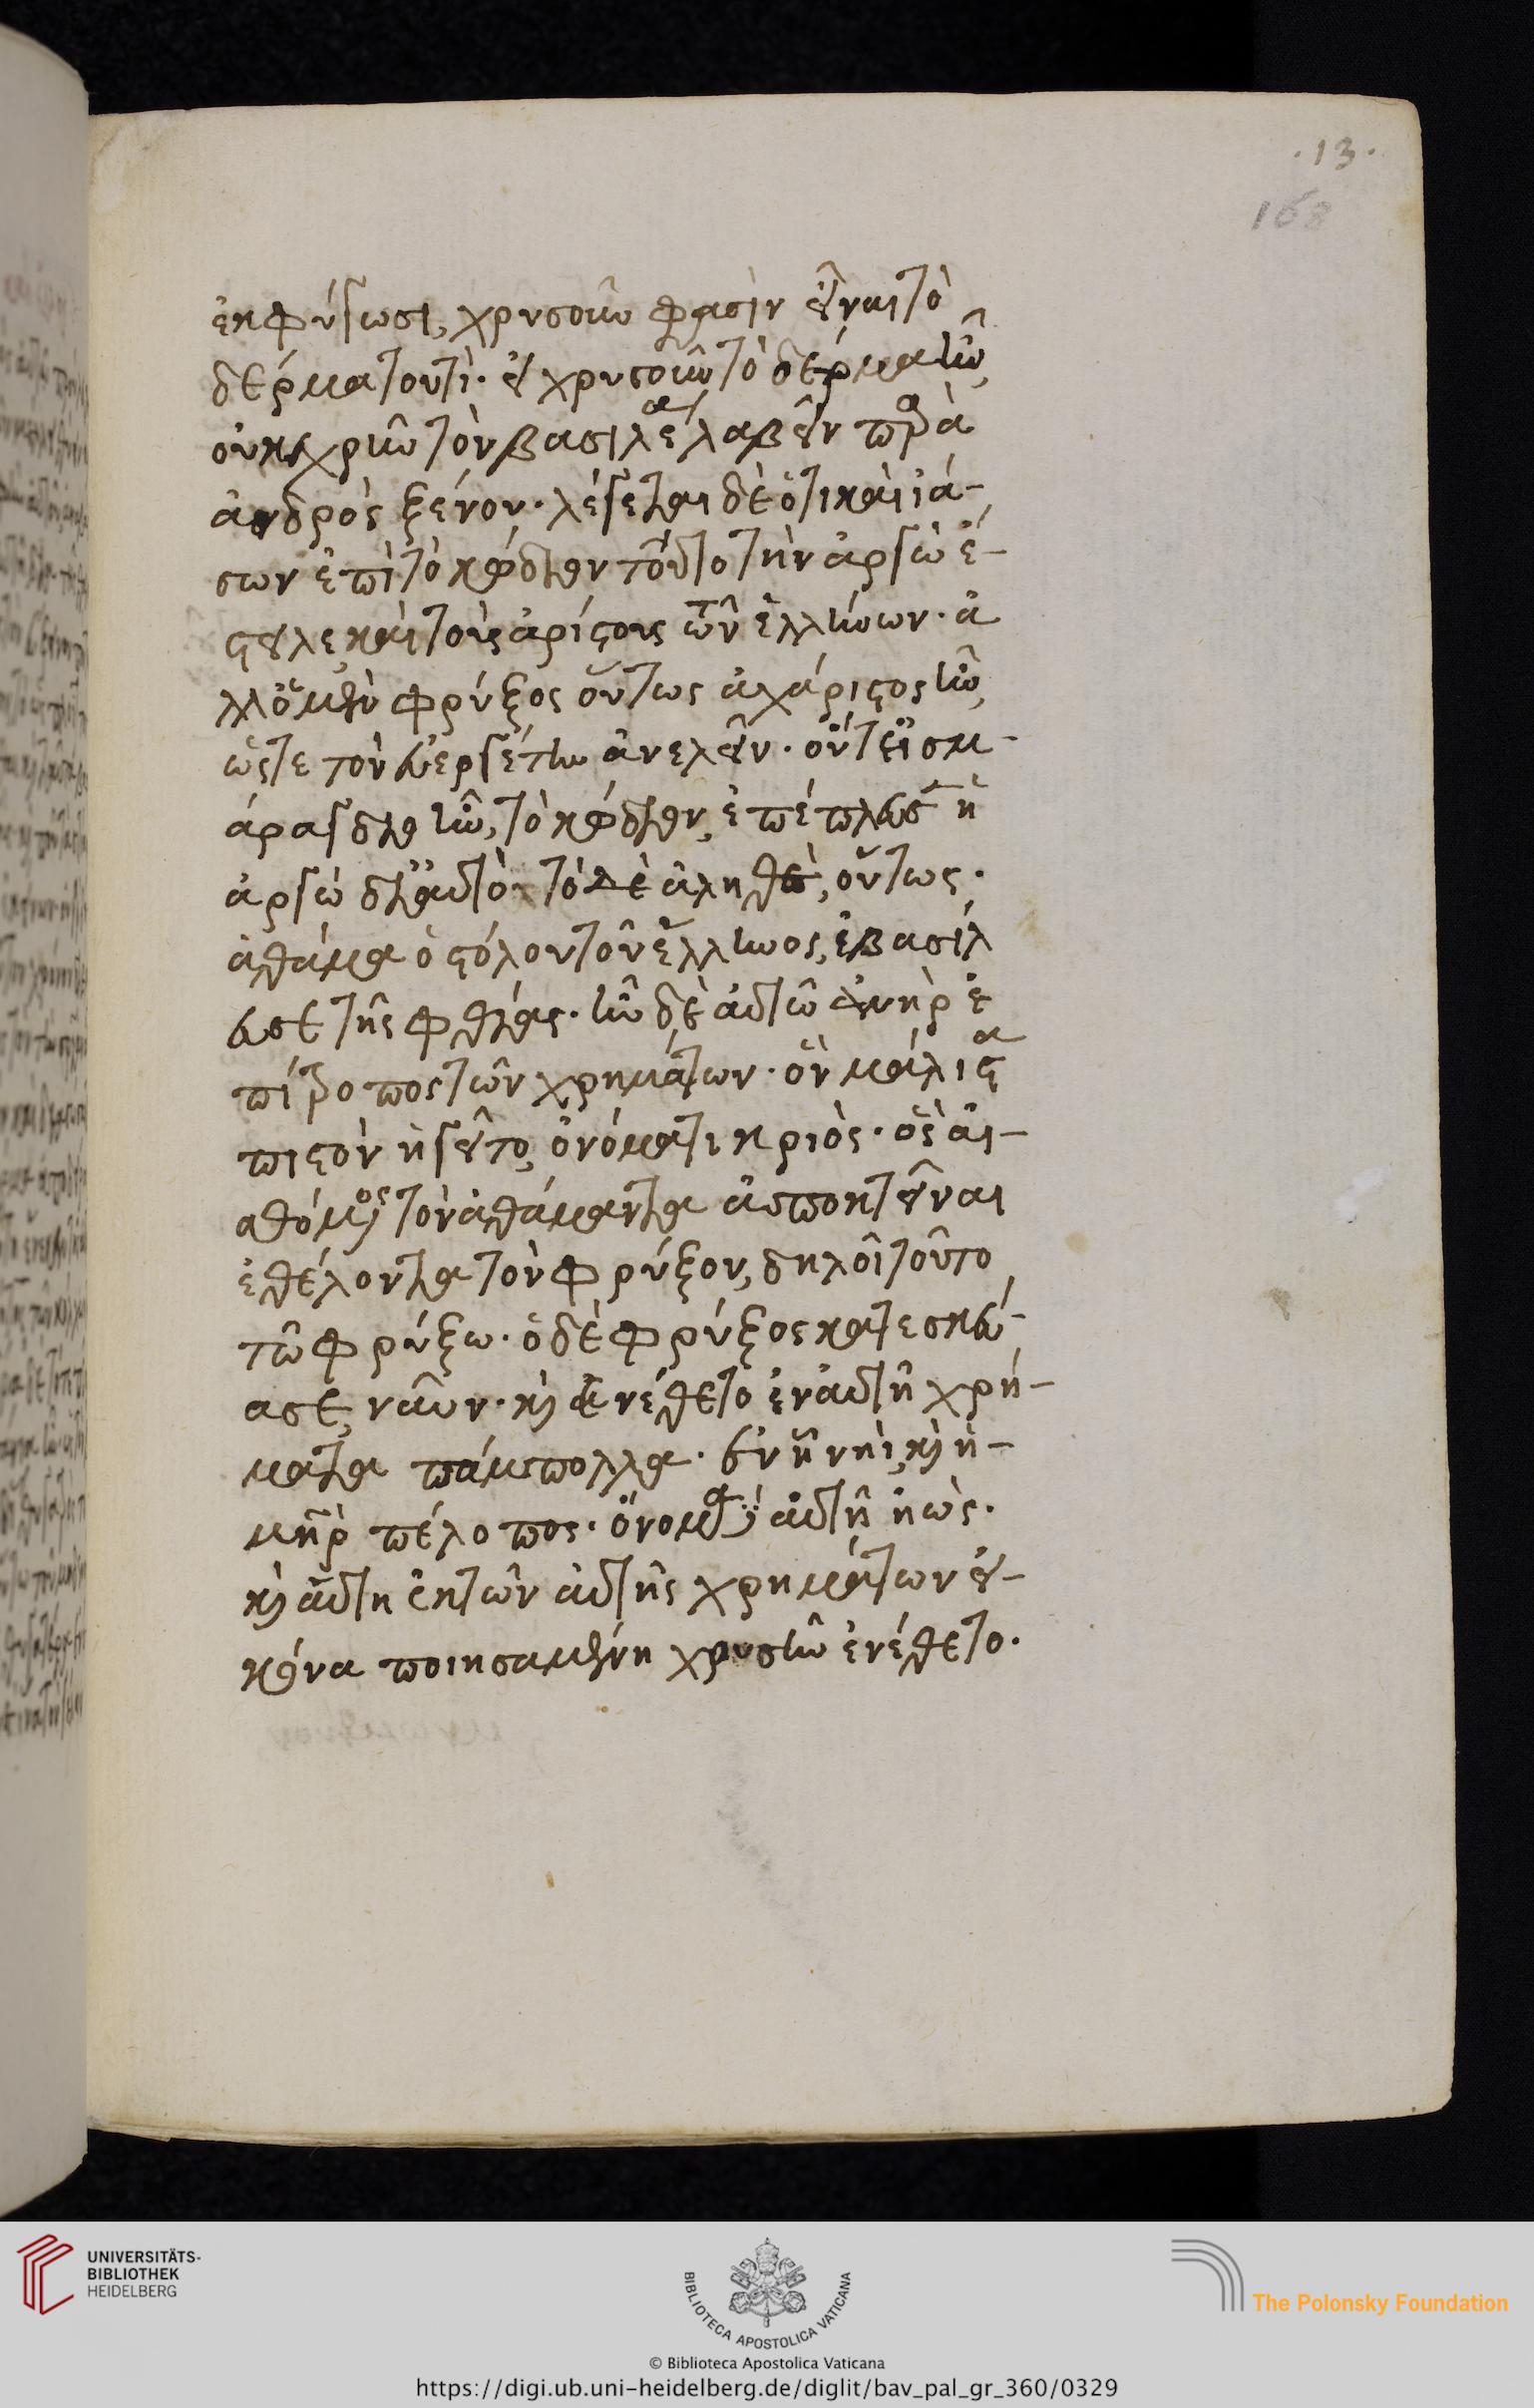 ἐκφύγωσι, χρυσοῦν φασὶν εἶναι τὸ
δέρμα τουτί. εἰ χρυσοῦν τὸ δέρμα ἦν,
οὐκ ἐχρῆν τὸν βασιλέα λαβεῖν παρὰ
ἀνδρὸς ξένου. λέγεται δὲ ὅτι καὶ ἰά-
σων ἐπὶ τὸ κώδιον τοῦτο τὴν ἀργὼ ἔ-
στειλε, καὶ τοὺς ἀρίστους τῶν ἑλλήνων. ἀ
λλ' ὁ μὲν φρύξος οὕτως ἀχάριστος ἦν,
ὥστε τὸν εὐεργέτην ἀνελεῖν. οὔτ' εἰ σμ-
άραγδιο ἦν, τὸ κώδιον, ἐπέπλευσεν ἡ
ἀργὼ δι' αὐτό. τὸ δὲ ἀληθὲς, οὕτως.
ἀθάμα ὁ στόλου τοῦ ἕλληνος, ἐβασίλ
ευσε τῆς φθίας. ἦν δὲ αὐτῶ ἀνὴρ ἐ
πίτροπος τῶν χρημάτων. ὃν μάλιστα
πιστὸν ἡγεῖτο, ὀνόματι κριός. ὃς αἰ-
σθόμενος τὸν ἀθάμαντα ἀποκτεῖναι
ἐθέλοντα τὸν φρύξον, δηλοῖ τοῦτο
τῶ φρύξω. ὁ δὲ φρύξος κατεσκεύ-
ασε, ναῦν. καὶ ἐνέθετο ἐν αὐτῆ χρή-
ματα πάμπολλα. ἐν ἧ νηὶ, καὶ ἡ-
μήτηρ πέλοπος. ὄνομα ἦν αὐτῆ ἠώς.
καὶ αὕτη ἐκ τῶν αὐτῆς χρημάτων εἰ-
κόνα ποιησαμένη χρυσῆν ἐνέθετο.
.13.
168
UNIVERSITÄTS-
BIBLIOTHEK
HEIDELBERG
BIBLIOTECA APOSTOLICA VATICANA
© Biblioteca Apostolica Vaticana
The Polonsky Foundation
https://digi.ub.uni-heidelberg.de/diglit/bav_pal_gr_360/0329